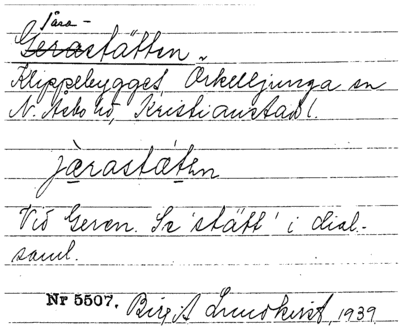 Jära-
Gerastätten
Klippebygget, Örkelljunga sn
N. Åsbo hd, Kristianstad l.
jærastæten
Vid Geren. Se 'stätt' i dial-
saml.
Nr 5507. Birgit Lundkvist, 1939